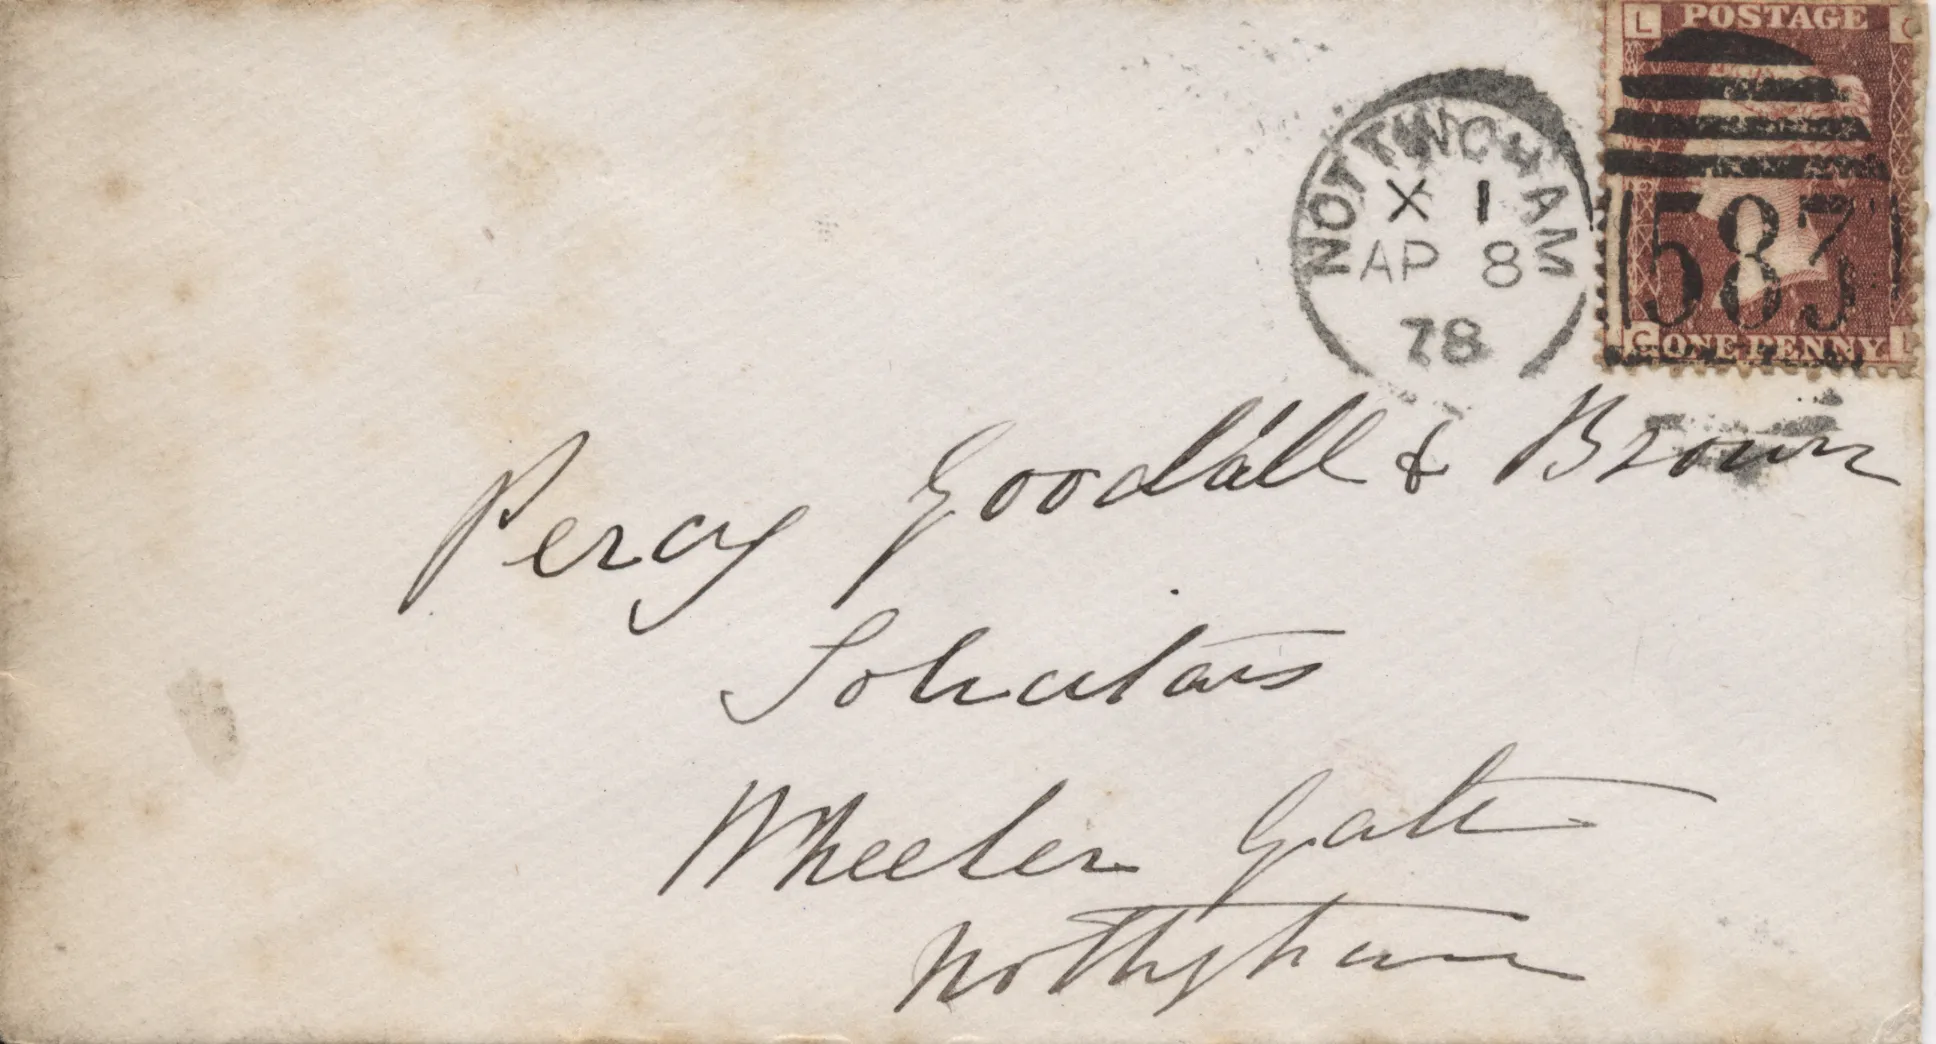 L POSTAGE G
NOTTINGHAM
X 1
AP 8
78
583
G ONE PENNY L
Percy Goodall & Brown
Solicitors
Wheeler Gate
Nottingham